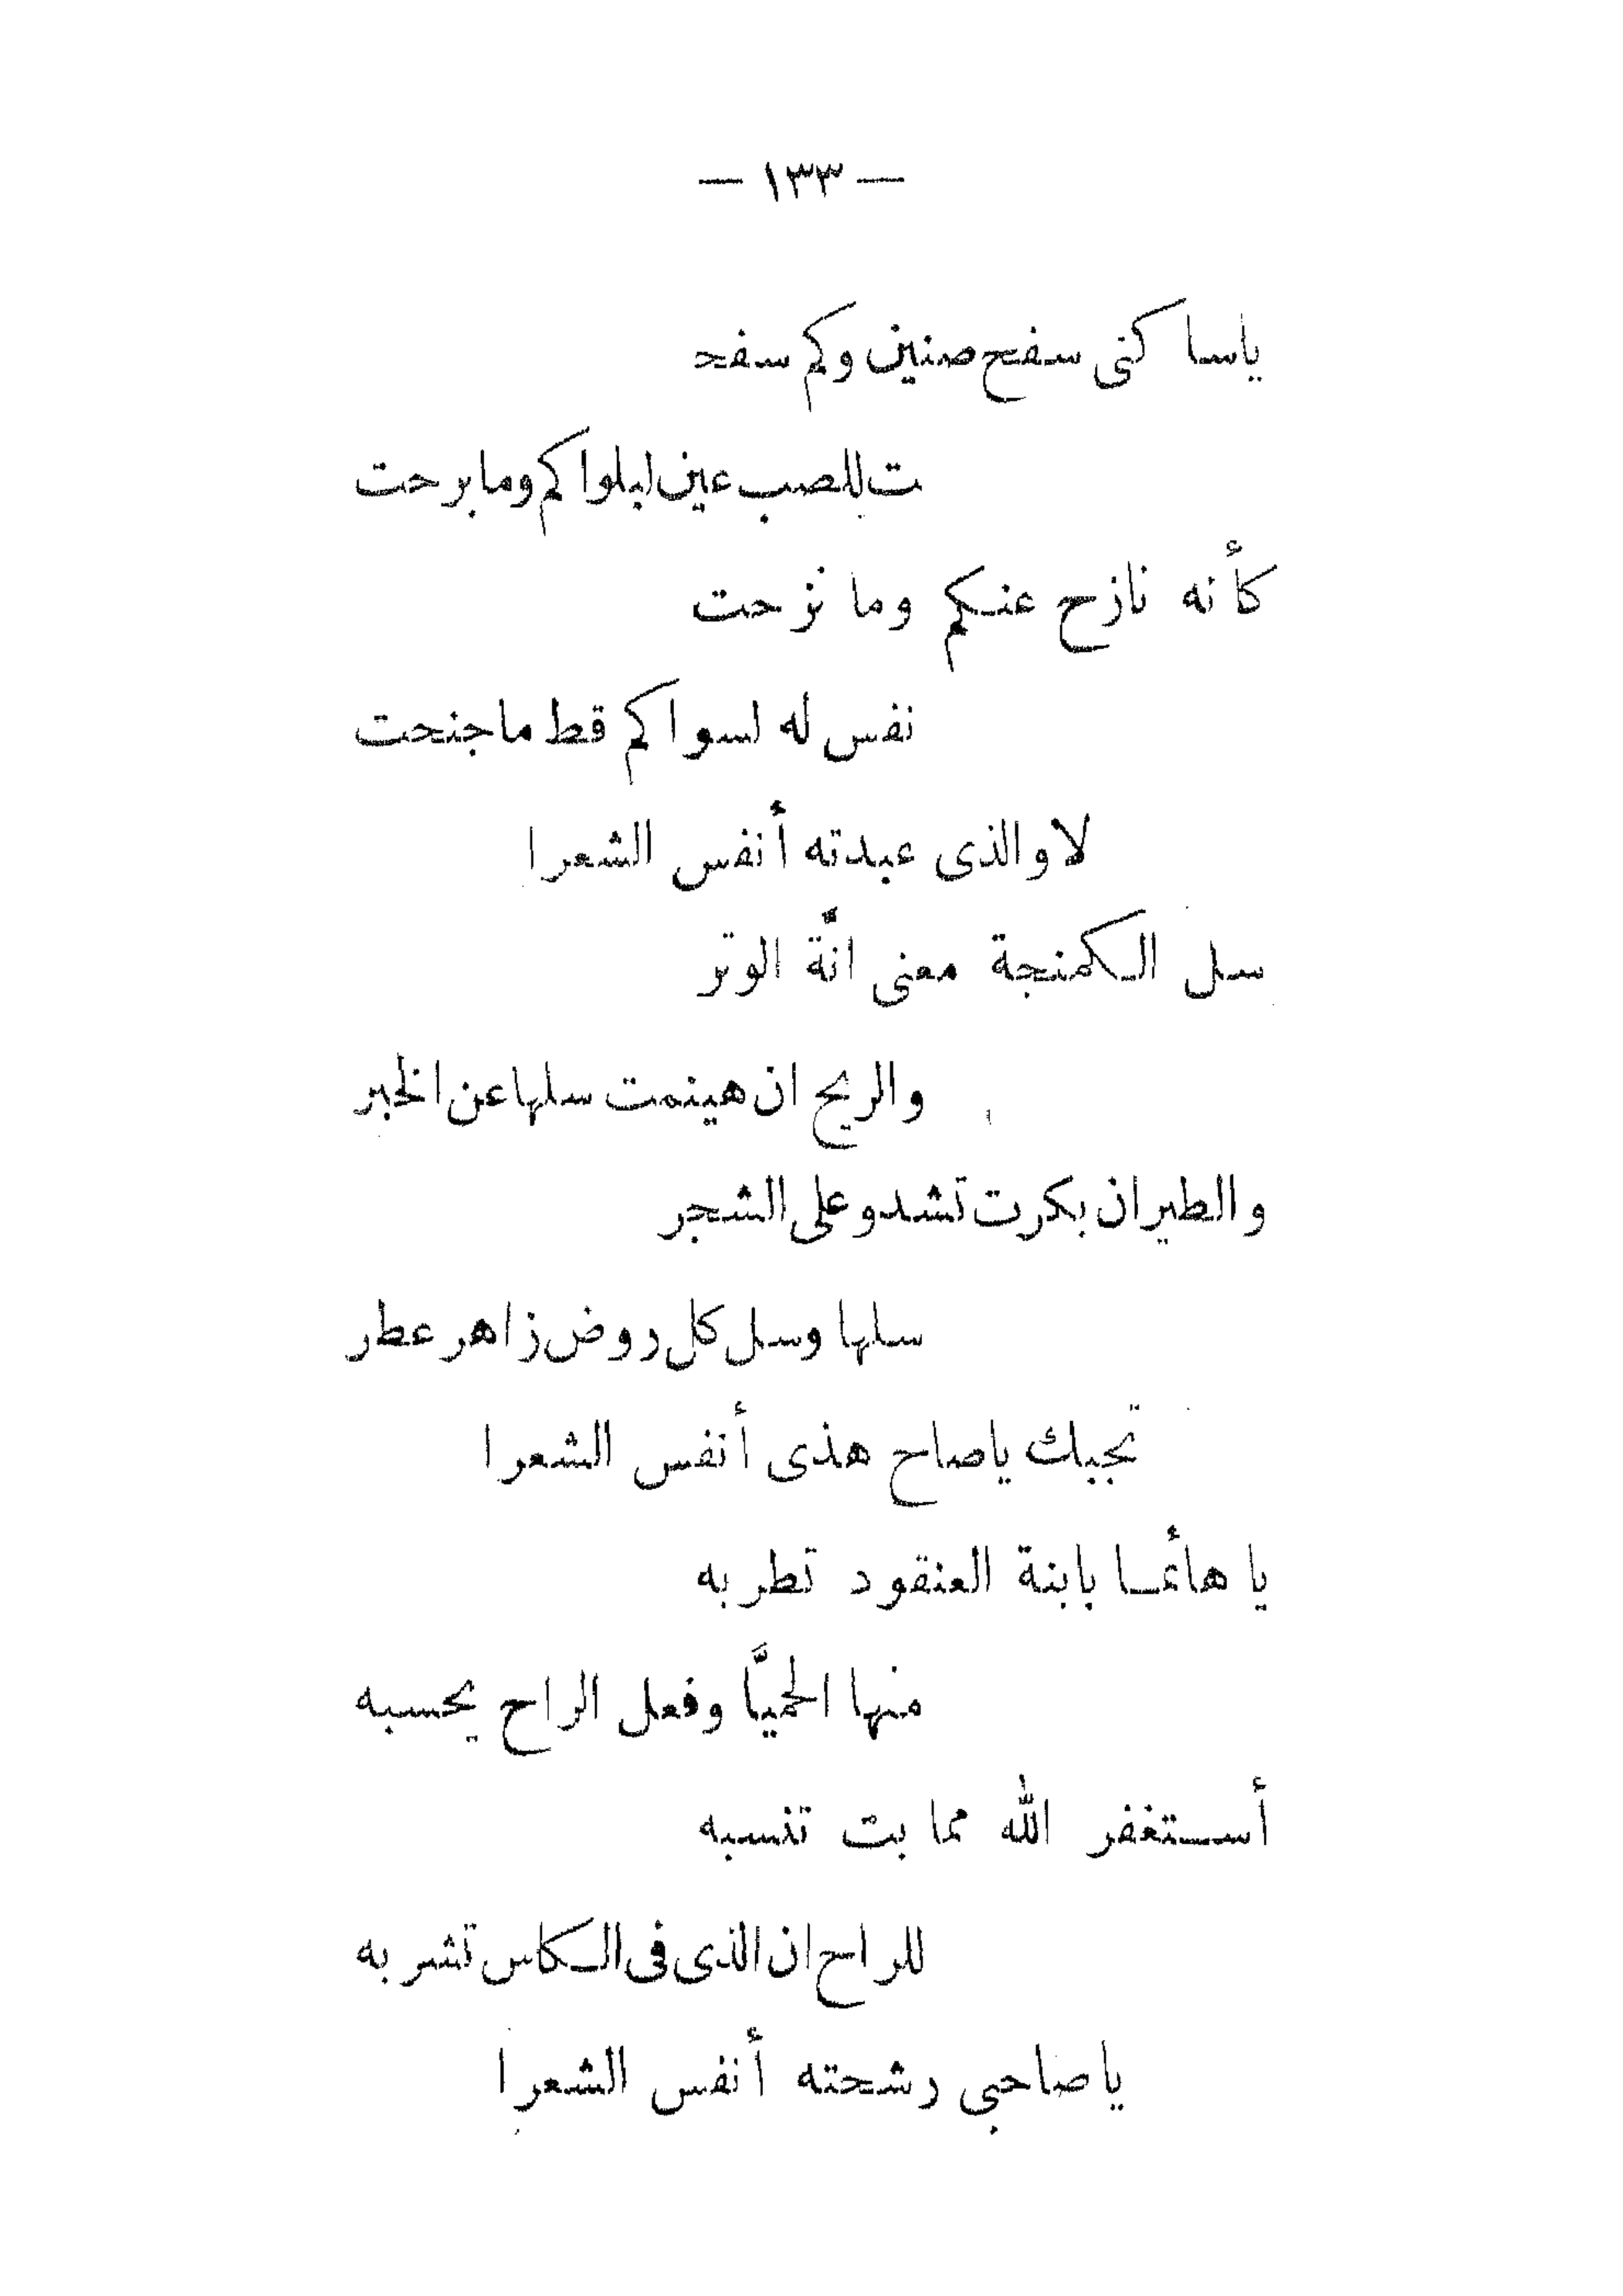 — ١٣٣ —
ياسا كنى سفح صنين وكم سفحـ
ـت للصب عين لبلوا كم وما برحت
كأنه نازح عنكم وما نزحت
نفس له لسوا كم قط ما جنحت
لا والذى عبدته أنفس الشعرا
سل الكمنجة معنى انَّة الوتر
والريح ان هينمت سلها عن الخبر
والطير ان بكرت تشدو على الشجر
سلها وسل كل روض زاهر عطر
تجبك ياصاح هذى أنفس الشعرا
يا هائما بابنة العنقود تطربه
منها الحميَّا وفعل الراح يحسبه
أستغفر الله مما بت تنسبه
للراح ان الذى فى الكاس تشربه
ياصاحبى رشحته أنفس الشعرا